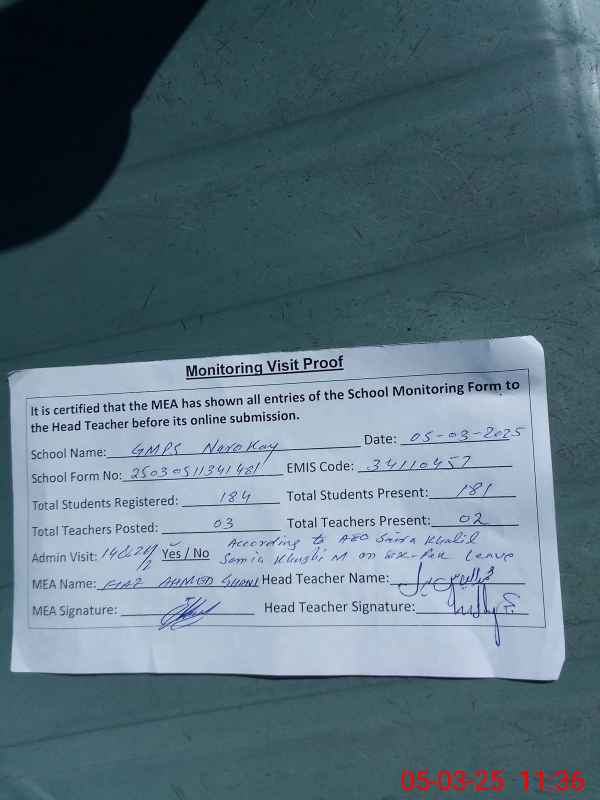 Monitoring Visit Proof
It is certified that the MEA has shown all entries of the School Monitoring Form to
the Head Teacher before its online submission.
School Name: GMPS Narokay Date: 05-03-2025
School Form No: 25030511341481 EMIS Code: 34110457
Total Students Registered: 184 Total Students Present: 181
Total Teachers Posted: 03 Total Teachers Present: 02
According to AEO Saira Khalil
Admin Visit: Yes / No Samia Khushi M on Ex-Pak Leave
MEA Name: FIAZ AHMED GHANI Head Teacher Name:
MEA Signature: Head Teacher Signature:
05-03-25 11:36